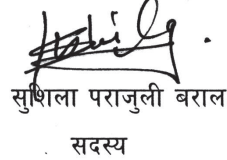 सुशिला पराजुली बराल
सदस्य